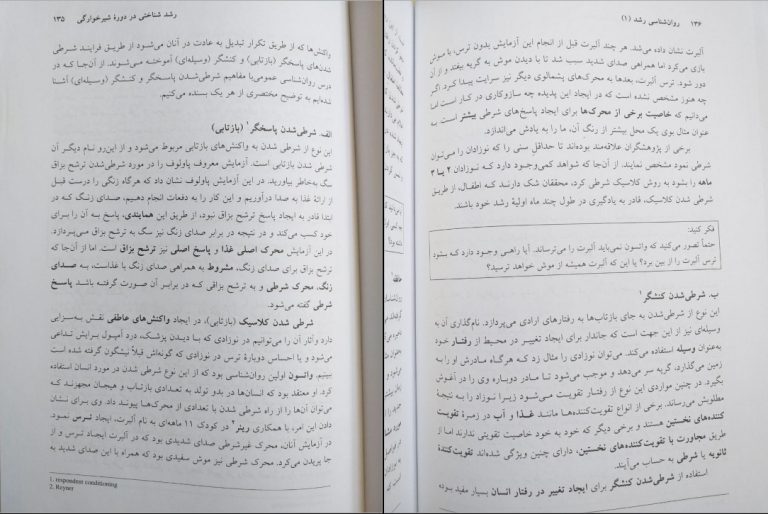 رشد شناختی در دورهٔ شیرخوارگی ۱۳۵
واکنش‌ها که از طریق تکرار تبدیل به عادت در آنان می‌شود از طریق فرایند شرطی
شدن‌های پاسخگر (بازتابی) و کنشگر (وسیله‌ای) آموخته می‌شوند. از آن‌جا که در
درس روان‌شناسی عمومی با مفاهیم شرطی‌شدن پاسخگر و کنشگر (وسیله‌ای) آشنا
شده‌ایم به توضیح مختصری از هر یک بسنده می‌کنیم.
الف. شرطی‌شدن پاسخگر۱ (بازتابی)
این نوع از شرطی شدن به واکنش‌های بازتابی مربوط می‌شود و از این‌رو نام دیگر آن
شرطی شدن بازتابی است. آزمایش معروف پاولوف را در مورد شرطی‌شدن ترشح بزاق
سگ به‌خاطر بیاورید. در این آزمایش پاولوف نشان داد که هرگاه زنگی را درست قبل از
ارائهٔ غذا به صدا درآوریم و این کار را به دفعات انجام دهیم، صدای زنگ که در
ابتدا قادر به ایجاد پاسخ ترشح بزاق نبود، از طریق این همایندی، پاسخ به آن را برای
خود کسب می‌کند و در نتیجه در برابر صدای زنگ نیز سگ به ترشح بزاق می‌پردازد.
در این آزمایش محرک اصلی غذا و پاسخ اصلی نیز ترشح بزاق است. اما از آن‌جا که
ترشح بزاق برای صدای زنگ، مشروط به همراهی صدای زنگ با غذاست، به صدای
زنگ، محرک شرطی و به ترشح بزاقی که در برابر آن صورت گرفته باشد پاسخ
شرطی گفته می‌شود.
شرطی شدن کلاسیک (بازتابی)، در ایجاد واکنش‌های عاطفی نقش به‌سزایی
دارد و آثار آن را می‌توانیم در نوزادی که با دیدن پزشک، درد آمپول برایش تداعی
می‌شود و یا احساس دوبارهٔ ترس در نوزادی که گونه‌اش قبلاً نیشگون گرفته شده است
ببینیم. واتسون اولین روان‌شناسی بود که از این نوع شرطی شدن در مورد انسان استفاده
کرد. او معتقد بود که انسان‌ها در بدو تولد به تعدادی بازتاب و هیجان مجهزند که
می‌توان آن‌ها را از راه شرطی شدن با تعدادی از محرک‌ها پیوند داد. وی برای نشان
دادن این امر، با همکاری رینر۲ در کودک ۱۱ ماهه‌ای به نام آلبرت، ایجاد ترس نمود.
در آزمایش آنان، محرک غیرشرطی صدای شدیدی بود که در آلبرت ایجاد ترس و از
جا پریدن می‌کرد. محرک شرطی نیز موش سفیدی بود که همراه با این صدای شدید به
1. respondent conditioning
2. Reyner
۱۳۶ روان‌شناسی رشد (۱)
آلبرت نشان داده می‌شد. هر چند آلبرت قبل از انجام این آزمایش بدون ترس، با موش
بازی می‌کرد اما همراهی صدای شدید سبب شد تا با دیدن موش به گریه بیفتد و از آن
دور شود. ترس آلبرت، بعدها به محرک‌های پشمالوی دیگر نیز سرایت پیدا کرد. اگر
چه هنوز مشخص نشده است که در ایجاد این پدیده چه سازوکاری در کار است اما
می‌دانیم که خاصیت برخی از محرک‌ها برای ایجاد پاسخ‌های شرطی بیشتر است به
عنوان مثال بوی یک محل بیشتر از رنگ آن، ما را به یادش می‌اندازد.
برخی از پژوهشگران علاقه‌مند بوده‌اند تا حداقل سنی را که نوزادان را می‌توان
شرطی نمود مشخص نمایند. از آن‌جا که شواهد کمی وجود دارد که نوزادان ۲ یا ۳
ماهه را بشود به روش کلاسیک شرطی کرد، محققان شک دارند که اطفال، از طریق
شرطی شدن کلاسیک، قادر به یادگیری در طول چند ماه اولیهٔ رشد خود باشند.
فکر کنید:
حتماً تصور می‌کنید که واتسون نمی‌باید آلبرت را می‌ترساند. آیا راهی وجود دارد که بشود
ترس آلبرت را از بین برد؟ یا این که آلبرت همیشه از موش خواهد ترسید؟
ب. شرطی‌شدن کنشگر۱
این نوع از شرطی‌شدن به جای بازتاب‌ها به رفتارهای ارادی می‌پردازد. نام‌گذاری آن به
وسیله‌ای نیز از این جهت است که جاندار برای ایجاد تغییر در محیط از رفتار خود
به‌عنوان وسیله استفاده می‌کند. می‌توان نوزادی را مثال زد که هرگاه مادرش او را به
زمین می‌گذارد، گریه سر می‌دهد و موجب می‌شود تا مادر دوباره وی را در آغوش
بگیرد. در چنین مواردی این نوع از رفتار تقویت می‌شود زیرا نوزاد را به نتیجهٔ
مطلوبش می‌رساند. برخی از انواع تقویت‌کننده‌ها مانند غذا و آب در زمرهٔ تقویت
کننده‌های نخستین هستند و برخی دیگر که خود به خود خاصیت تقویتی ندارند اما از
طریق مجاورت با تقویت‌کننده‌های نخستین، دارای چنین ویژگی شده‌اند تقویت‌کنندهٔ
ثانویه یا شرطی به حساب می‌آیند.
استفاده از شرطی‌شدن کنشگر برای ایجاد تغییر در رفتار انسان بسیار مفید بوده